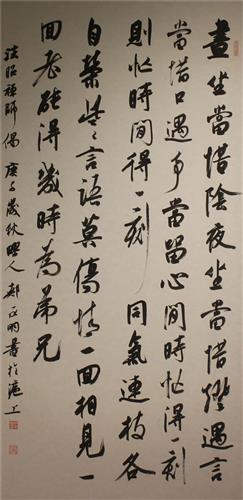 晝坐當惜陰夜坐當惜燈遇言
當惜口遇事當留心間時忙得一刻
則忙時間得一刻 同氣連枝各
自榮些々言語莫傷情一回相見一
回老能得幾時為弟兄
法昭禪師偈 庚子歲秋 人 書於滬上